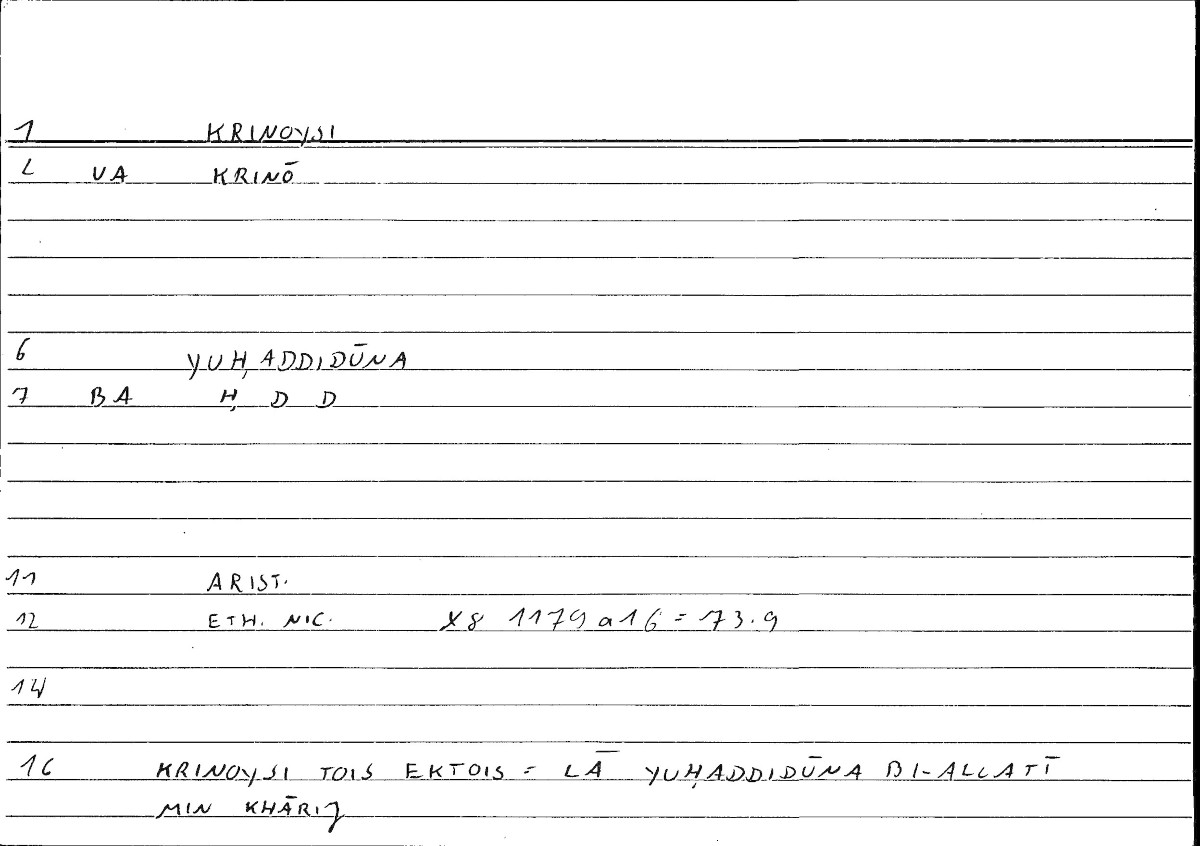 1 KRINOYSI
2 VA KRINŌ
6 YUḤADDIDŪNA
7 BA Ḥ D D
11 ARIST.
12 ETH. NIC. X8 1179a16 = 73.9
14
16 KRINOYSI TOIS EKTOIS = LĀ YUḤADDIDŪNA BI-ALLATĪ
MIN KHĀRIJ